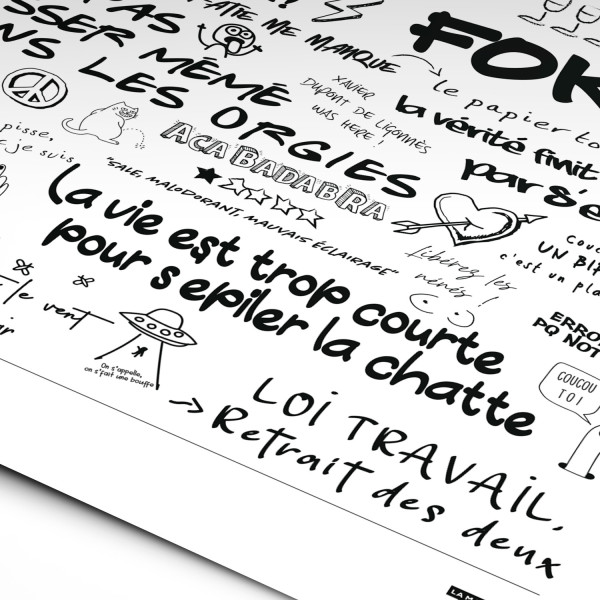 PAS
PATTE ME MANQUE
FOK
SSER MÉMÉ
NS LES ORGIES
XAVIER
DUPONT DE LIGONNÈS
WAS HERE !
le papier to
la vérité finit
par s'e
pisse,
je suis
ACABADABRA
"SALE, MALODORANT, MAUVAIS ÉCLAIRAGE"
La vie est trop courte
pour s epiler la chatte
Libérez les
nénés !
COUC
UN BIF
c'est un pla
ERRO
PQ NOT
le vent
On s'appelle,
on s'fait une bouffe
COUCOU
TOI
LOI TRAVAIL,
Retrait des deux
LA M